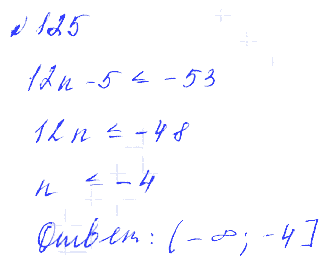 №125
12n - 5 ≤ -53
12n ≤ -48
n ≤ -4
Ответ: (-∞; -4]